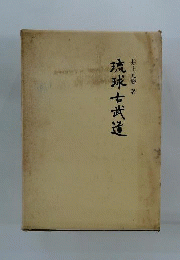 琉球古武道
井上元勝 著